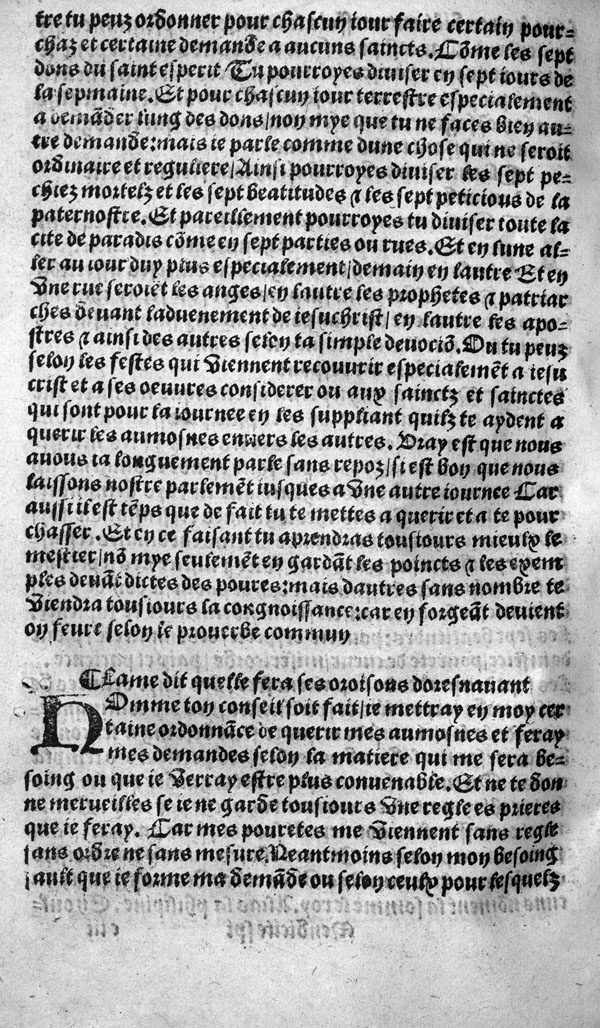 tre tu peuz ordonner pour chascun iour faire certain pour-
chaz et certaine demande a aucuns saincts. Cõme les sept
dons du saint esperit Tu pourroyes diuiser en sept iours de
la sepmaine. Et pour chascun iour terrestre especialement
a demãder lung des dons/ non mye que tu ne faces bien au-
tre demande: mais ie parle comme dune chose qui ne seroit
ordinaire et reguliere/ Ainsi pourroyes diuiser les sept pe-
chiez mortelz et les sept beatitudes ⁊ les sept peticious de la
paternostre. Et pareillement pourroyes tu diuiser toute la
cite de paradis cõme en sept parties ou rues. Et en lune al-
ler au iour duy plus especialement/ demain en lautre Et en
Vne rue seroiẽt les anges/ en lautre les prophetes ⁊ patriar
ches deuant laduenement de iesuchrist/ en lautre les apo-
stres ⁊ ainsi des autres selon ta simple deuociõ. Ou tu peuz
selon les festes qui Viennent recouurir especialemẽt a iesu
crist et a ses oeuures considerer ou aux sainctz et sainctes
qui sont pour la iournee en les suppliant quilz te aydent a
querir les aumosnes enuers les autres. Vray est que nous
auous ia longuement parle sans repoz/ si est bon que nous
laissons nostre parlemẽt iusques a Vne autre iournee Car
aussi il est tẽps que de fait tu te mettes a querir et a te pour
chasser. Et en ce faisant tu aprendras tousiours mieulx le
mestier/ nõ mye seulemẽt en gardãt les poincts ⁊ les exem
ples deuãt dictes des poures: mais dautres sans nombre te
Viendra tousiours la congnoissance: car en forgeãt deuient
on feure selon le prouerbe commun
¶ Lame dit quelle fera ses oroisons doresnauant
HOmme ton conseil soit fait/ ie mettray en moy cer
taine ordonnãce de querir mes aumosnes et feray
mes demandes selon la matiere qui me sera be-
soing ou que ie Verray estre plus conuenable. Et ne te don
ne merueilles se ie ne garde tousiours Vne regle es prieres
que ie feray. Car mes pouretes me Viennent sans regle
sans ordre ne sans mesure. Neantmoins selon mon besoing
fault que ie forme ma demãde ou selon ceulx pour lesquelz